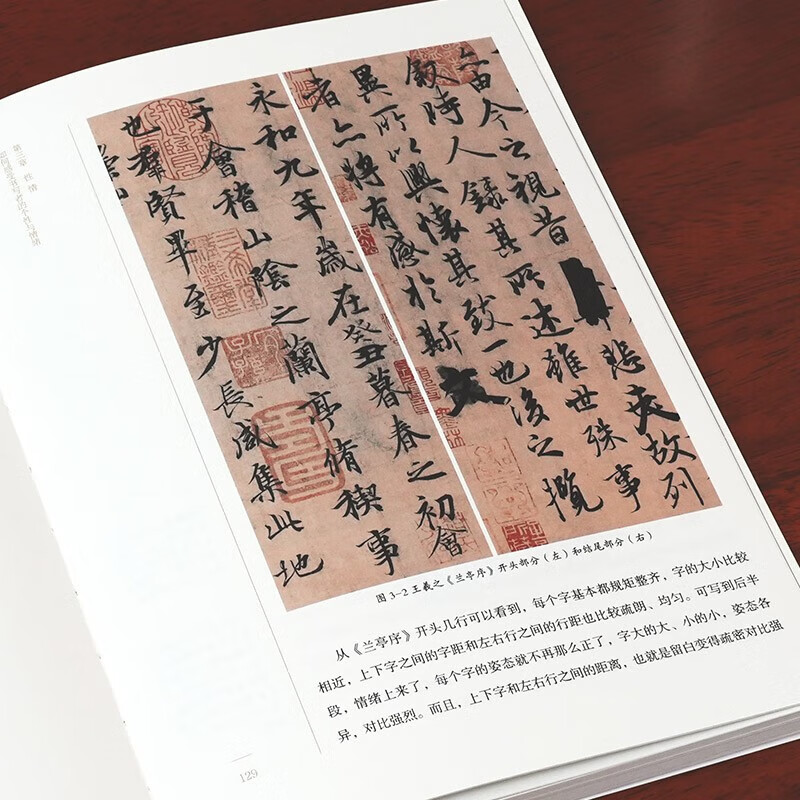 第三章 性情
永和九年歲在癸丑暮春之初會
于會稽山陰之蘭亭脩稧事
也羣賢畢至少長咸集此地
亦由今之視昔悲夫故列
叙時人錄其所述雖世殊事
異所以興懷其致一也後之攬
者亦將有感於斯文
图 3-2 王羲之《兰亭序》开头部分（左）和结尾部分（右）
从《兰亭序》开头几行可以看到，每个字基本都规矩整齐，字的大小比较
相近，上下字之间的字距和左右行之间的行距也比较疏朗、均匀。可写到后半
段，情绪上来了，每个字的姿态就不再那么正了，字大的大、小的小，姿态各
异，对比强烈。而且，上下字和左右行之间的距离，也就是留白变得疏密对比强
129